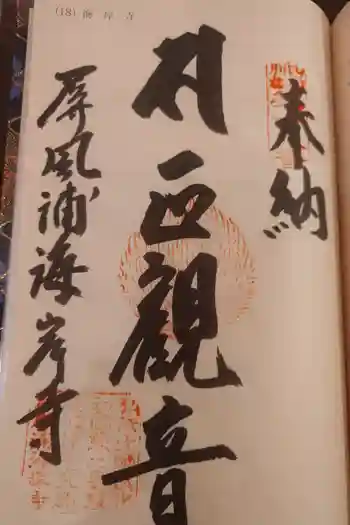 (18) 海岸寺
奉納
正觀音
屏風浦海岸寺